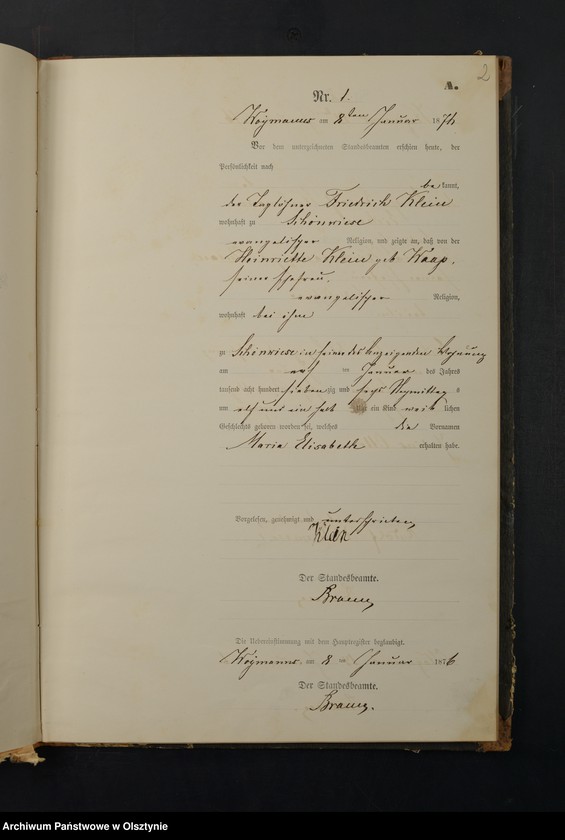 2
A.
Nr. 1.
Woymanns am 8ten Januar 1876.
Vor dem unterzeichneten Standesbeamten erschien heute, der
Persönlichkeit nach
bekannt,
der Taglöhner Friedrich Klein
wohnhaft zu Schönwiese
evangelischer Religion, und zeigte an, daß von der
Henriette Klein geb Kaap,
seiner Ehefrau,
evangelischer Religion,
wohnhaft bei ihm
zu Schönwiese in seiner des Anzeigenden Wohnung
am ten Januar des Jahres
tausend acht hundert siebenzig und sechs Vormittags
um elf und ein halb Uhr ein Kind weiblichen
Geschlechts geboren worden sei, welches die Vornamen
Maria Elisabeth erhalten habe.
Vorgelesen, genehmigt und unterschrieben
Klein
Der Standesbeamte.
Die Uebereinstimmung mit dem Hauptregister beglaubigt.
Woymanns am 8ten Januar 1876
Der Standesbeamte.
Archiwum Państwowe w Olsztynie